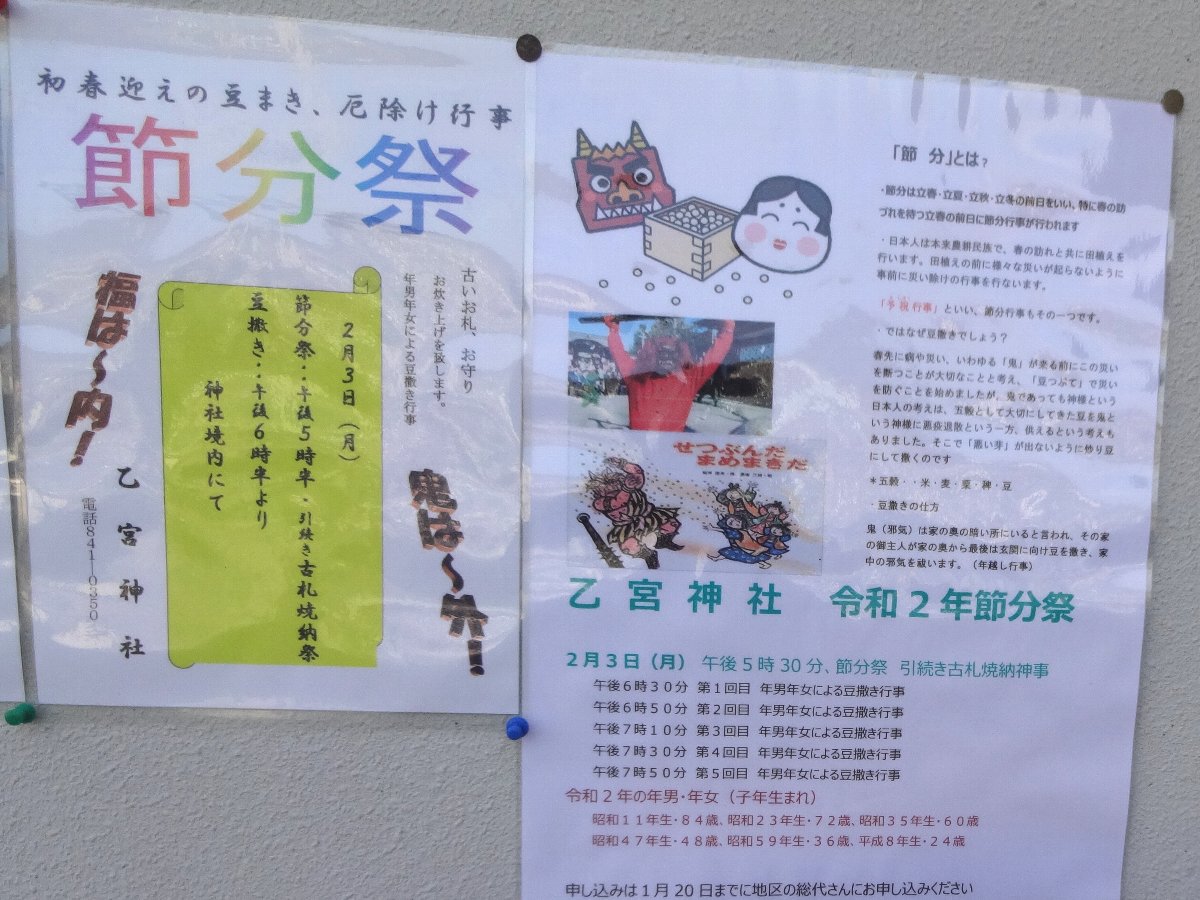 初春迎えの豆まき、厄除け行事
節分祭
古いお札、お守り
お炊き上げを致します。
年男年女による豆撒き行事
鬼は～外！
2月3日（月）
節分祭‥午後5時半・引続き古札焼納祭
豆撒き‥午後6時半より
神社境内にて
福は～内！
乙宮神社
電話841-0350
「節 分」とは？
・節分は立春・立夏・立秋・立冬の前日をいい。特に春の訪
づれを待つ立春の前日に節分行事が行われます
・日本人は本来農耕民族で、春の訪れと共に田植えを
行います。田植えの前に様々な災いが起らないように
事前に災い除けの行事を行ないます。
「予祝行事」といい、節分行事もその一つです。
・ではなぜ豆撒きでしょう？
春先に病や災い、いわゆる「鬼」が来る前にこの災い
を断つことが大切なことと考え、「豆つぶて」で災い
を防ぐことを始めましたが、鬼であっても神様という
日本人の考えは、五穀として大切にしてきた豆を鬼と
いう神様に悪疫退散という一方、供えるという考えも
ありました。そこで「悪い芽」が出ないように炒り豆
にして撒くのです
＊五穀・・米・麦・粟・稗・豆
・豆撒きの仕方
鬼（邪気）は家の奥の暗い所にいると言われ、その家
の御主人が家の奥から最後は玄関に向け豆を撒き、家
中の邪気を祓います。（年越し行事）
せつぶんだ
まめまきだ
乙宮神社 令和2年節分祭
2月3日（月） 午後5時30分、節分祭 引続き古札焼納神事
午後6時30分 第1回目 年男年女による豆撒き行事
午後6時50分 第2回目 年男年女による豆撒き行事
午後7時10分 第3回目 年男年女による豆撒き行事
午後7時30分 第4回目 年男年女による豆撒き行事
午後7時50分 第5回目 年男年女による豆撒き行事
令和2年の年男・年女（子年生まれ）
昭和11年生・84歳、昭和23年生・72歳、昭和35年生・60歳
昭和47年生・48歳、昭和59年生・36歳、平成8年生・24歳
申し込みは1月20日までに地区の総代さんにお申し込みください